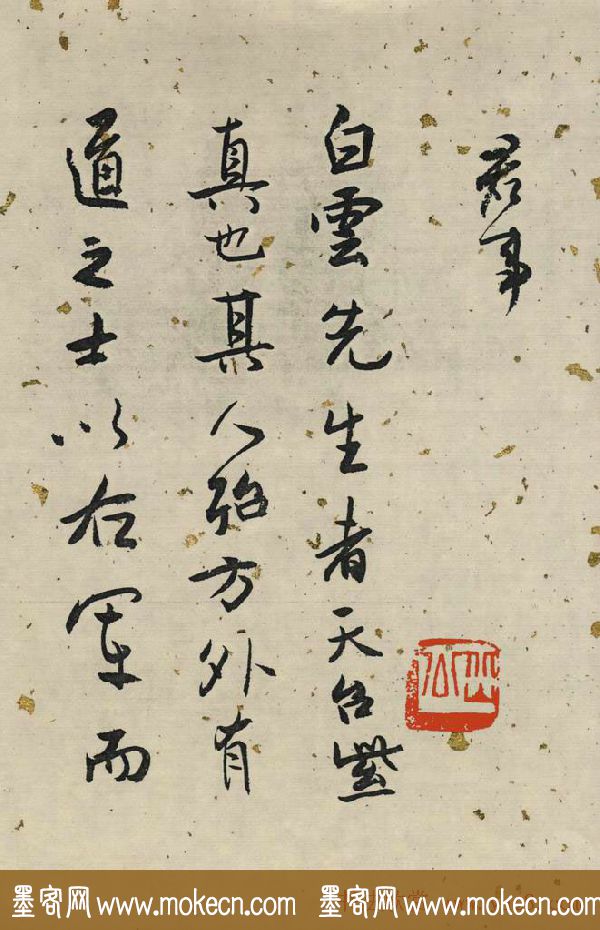 事
白雲先生者天台紫
真也其人殆方外有
道之士以右軍而
墨客网 www.mokecn.com 墨客网 www.mokecn.com